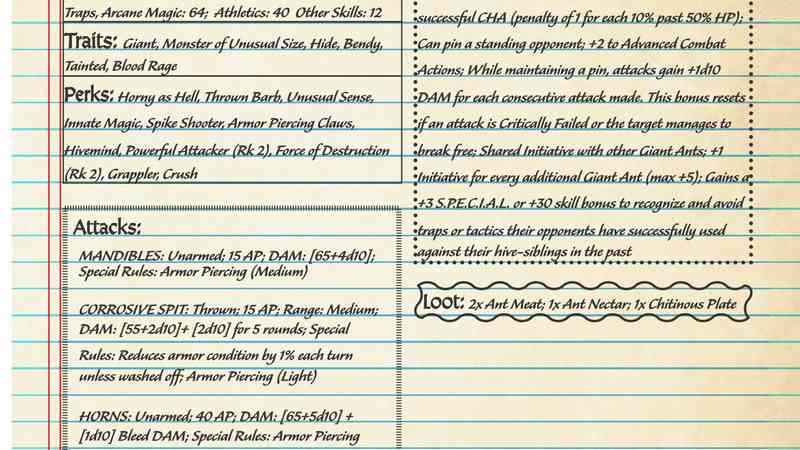 Traps, Arcane Magic: 64; Athletics: 40 Other Skills: 12
Traits: Giant, Monster of Unusual Size, Hide, Bendy,
Tainted, Blood Rage
Perks: Horny as Hell, Thrown Barb, Unusual Sense,
Innate Magic, Spike Shooter, Armor Piercing Claws,
Hivemind, Powerful Attacker (Rk 2), Force of Destruction
(Rk 2), Grappler, Crush
Attacks:
MANDIBLES: Unarmed; 15 AP; DAM: [65+4d10];
Special Rules: Armor Piercing (Medium)
CORROSIVE SPIT: Thrown; 15 AP; Range: Medium;
DAM: [55+2d10]+ [2d10] for 5 rounds; Special
Rules: Reduces armor condition by 1% each turn
unless washed off; Armor Piercing (Light)
HORNS: Unarmed; 40 AP; DAM: [65+5d10] +
[1d10] Bleed DAM; Special Rules: Armor Piercing
successful CHA (penalty of 1 for each 10% past 50% HP);
Can pin a standing opponent; +2 to Advanced Combat
Actions; While maintaining a pin, attacks gain +1d10
DAM for each consecutive attack made. This bonus resets
if an attack is Critically Failed or the target manages to
break free; Shared Initiative with other Giant Ants; +1
Initiative for every additional Giant Ant (max +5); Gains a
+3 S.P.E.C.I.A.L. or +30 skill bonus to recognize and avoid
traps or tactics their opponents have successfully used
against their hive-siblings in the past
Loot: 2x Ant Meat; 1x Ant Nectar; 1x Chitinous Plate